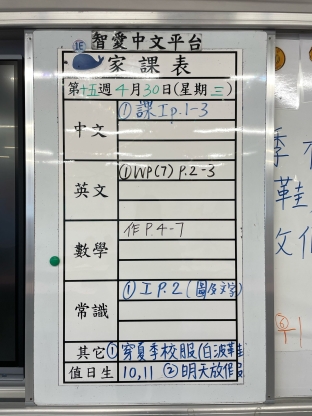 1E
智愛中文平台
家課表
第十五週4月30日(星期三)
中文 ①課I p.1-3
英文 ①WP(7) P.2-3
數學 作P.4-7
常識 ①I P.2(圖及文字)
其它 ①穿夏季校服(白波鞋
值日生 10,11 ②明天放假
季
鞋
文